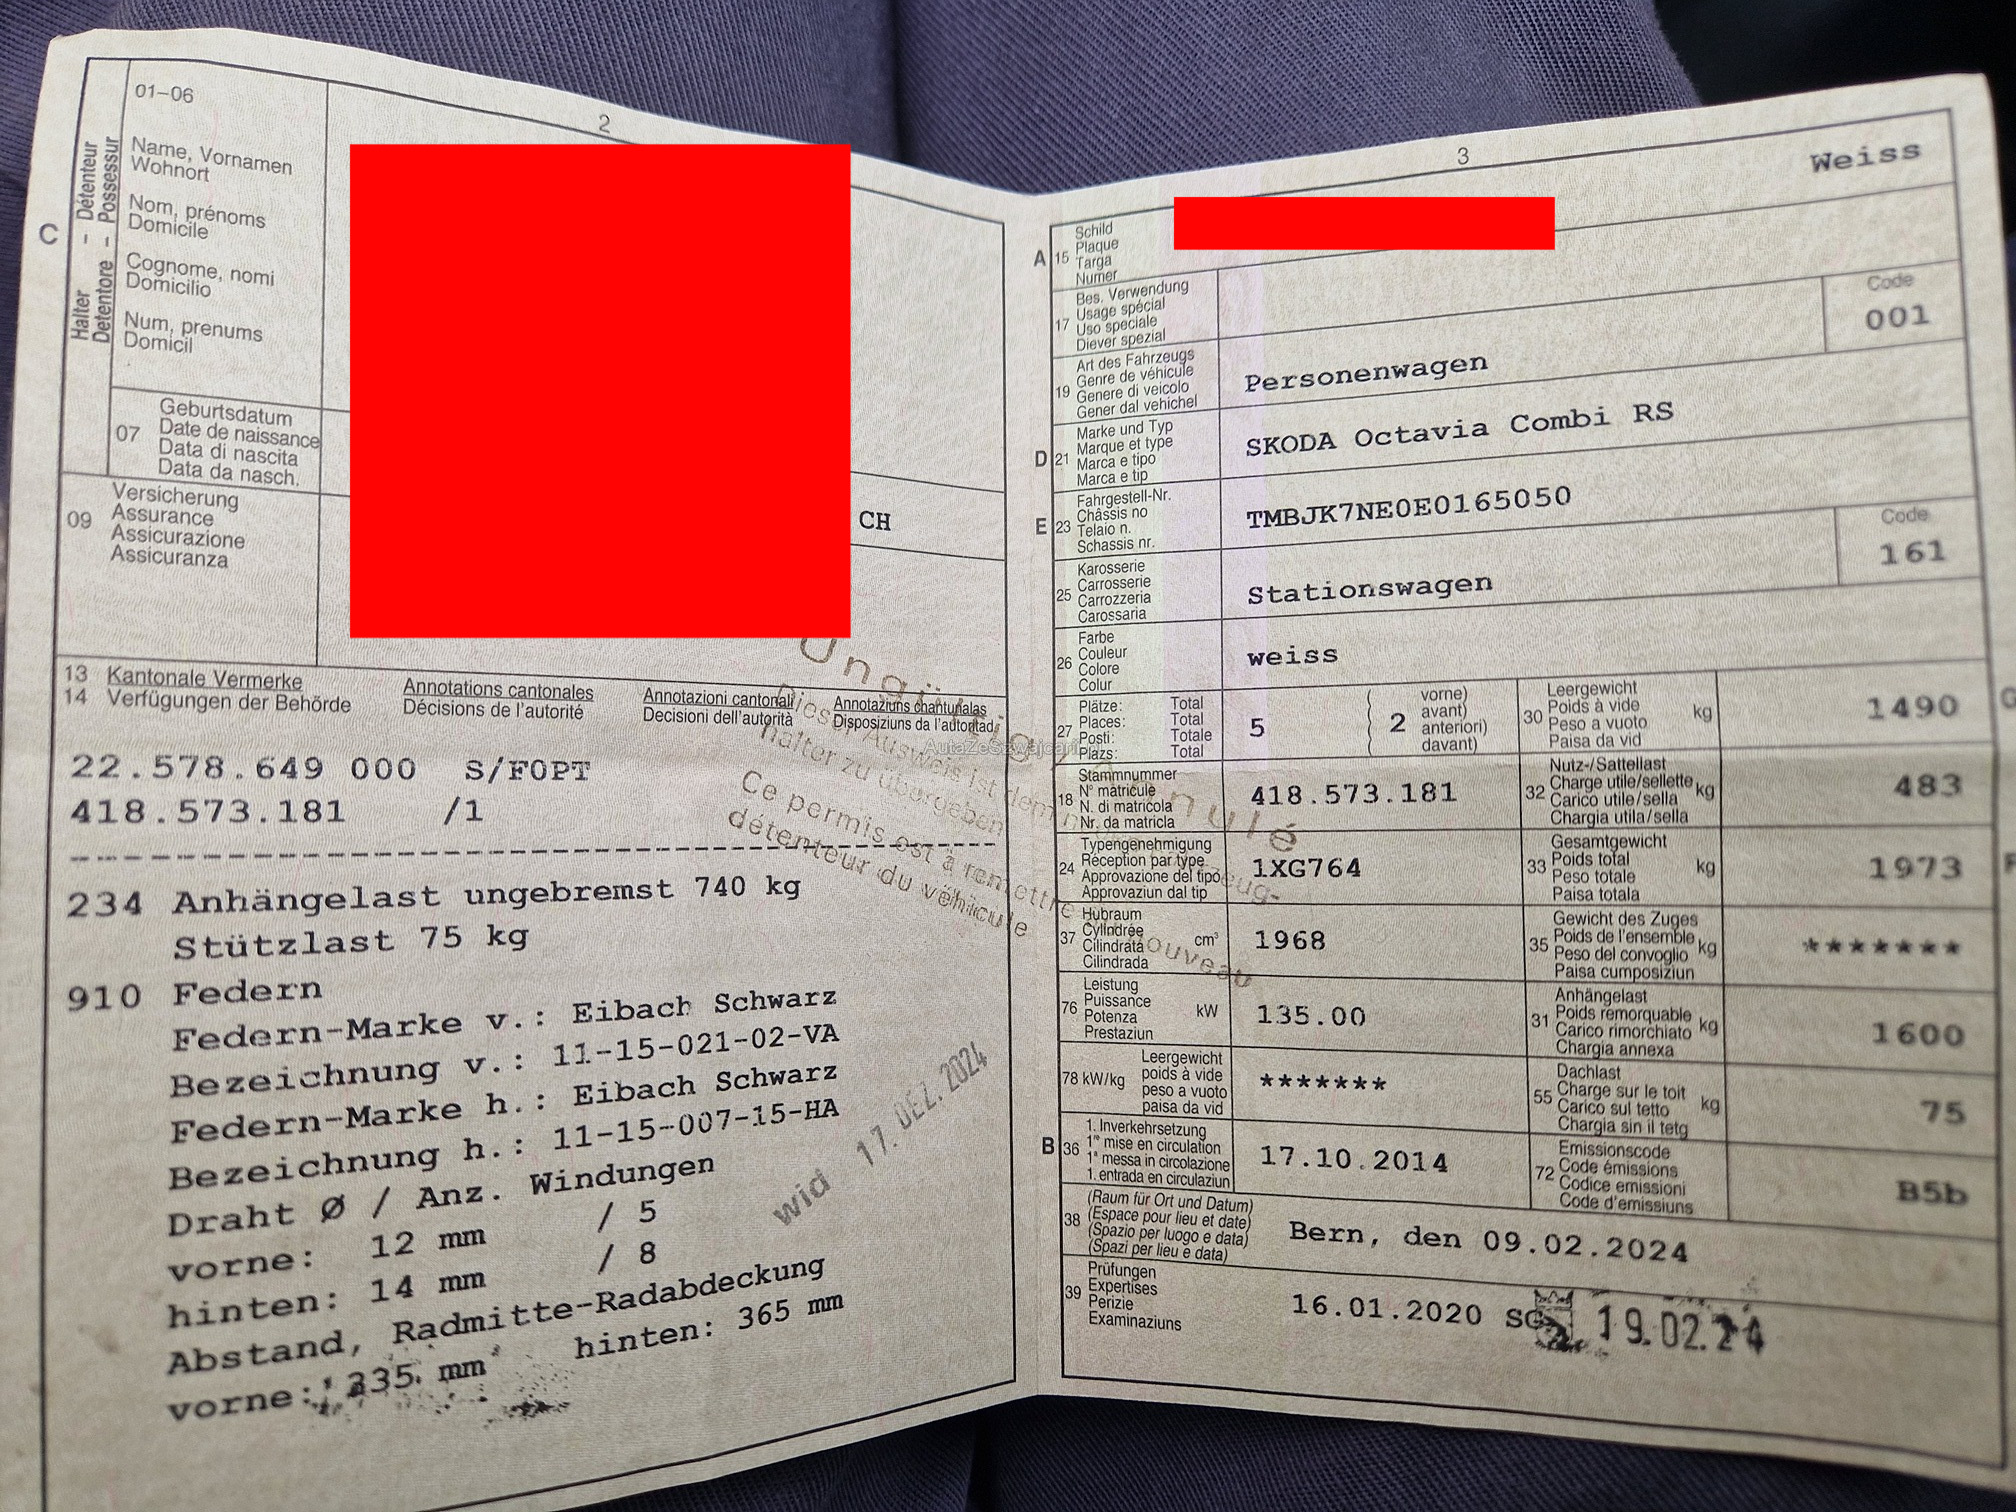 2
01-06
Halter - Détenteur
Detentore - Possessur
C
Name, Vornamen
Wohnort
Nom, prénoms
Domicile
Cognome, nomi
Domicilio
Num, prenums
Domicil
07
Geburtsdatum
Date de naissance
Data di nascita
Data da nasch.
09
Versicherung
Assurance
Assicurazione
Assicuranza
CH
13 Kantonale Vermerke Annotations cantonales Annotazioni cantonali Annotaziuns chantunalas
14 Verfügungen der Behörde Décisions de l'autorité Decisioni dell'autorità Disposiziuns da l'autoritad
22.578.649 000 S/FOPT
418.573.181 /1
234 Anhängelast ungebremst 740 kg
Stützlast 75 kg
910 Federn
Federn-Marke v.: Eibach Schwarz
Bezeichnung v.: 11-15-021-02-VA
Federn-Marke h.: Eibach Schwarz
Bezeichnung h.: 11-15-007-15-HA
Draht Ø / Anz. Windungen
vorne: 12 mm / 5
hinten: 14 mm / 8
Abstand, Radmitte-Radabdeckung
vorne: 335 mm hinten: 365 mm
wid 17. DEZ. 2024
Ungültig Annulé
Dieser Ausweis ist dem
halter zu übergeben
Ce permis est à remettre nouveau
détenteur du véhicule
AutaZeSzwajcarii
3
Weiss
A 15 Schild
Plaque
Targa
Numer
17 Bes. Verwendung
Usage spécial
Uso speciale
Diever spezial
Code
001
19 Art des Fahrzeugs
Genre de véhicule
Genere di veicolo
Gener dal vehichel
Personenwagen
D 21 Marke und Typ
Marque et type
Marca e tipo
Marca e tip
SKODA Octavia Combi RS
E 23 Fahrgestell-Nr.
Châssis no
Telaio n.
Schassis nr.
TMBJK7NE0E0165050
25 Karosserie
Carrosserie
Carrozzeria
Carossaria
Stationswagen
Code
161
26 Farbe
Couleur
Colore
Colur
weiss
27 Plätze: Total
Places: Total
Posti: Totale
Plazs: Total
5
2
vorne)
avant)
anteriori)
davant)
30 Leergewicht
Poids à vide
Peso a vuoto
Paisa da vid
kg
1490
G
18 Stammnummer
N° matricule
N. di matricola
Nr. da matricla
418.573.181
32 Nutz-/Sattellast
Charge utile/sellette
Carico utile/sella
Chargia utila/sella
kg
483
24 Typengenehmigung
Réception par type
Approvazione del tipo
Approvaziun dal tip
1XG764
33 Gesamtgewicht
Poids total
Peso totale
Paisa totala
kg
1973
F
37 Hubraum
Cylindrée
Cilindrata
Cilindrada
cm³
1968
35 Gewicht des Zuges
Poids de l'ensemble
Peso del convoglio
Paisa cumposiziun
kg
*******
76 Leistung
Puissance
Potenza
Prestaziun
kW
135.00
31 Anhängelast
Poids remorquable
Carico rimorchiato
Chargia annexa
kg
1600
78 kW/kg
Leergewicht
poids à vide
peso a vuoto
paisa da vid
*******
55 Dachlast
Charge sur le toit
Carico sul tetto
Chargia sin il tetg
kg
75
B 36 1. Inverkehrsetzung
1re mise en circulation
1a messa in circolazione
1. entrada en circulaziun
17.10.2014
72 Emissionscode
Code émissions
Codice emissioni
Code d'emissiuns
B5b
38 (Raum für Ort und Datum)
(Espace pour lieu et date)
(Spazio per luogo e data)
(Spazi per lieu e data)
Bern, den 09.02.2024
39 Prüfungen
Expertises
Perizie
Examinaziuns
16.01.2020 SG 19.02.24